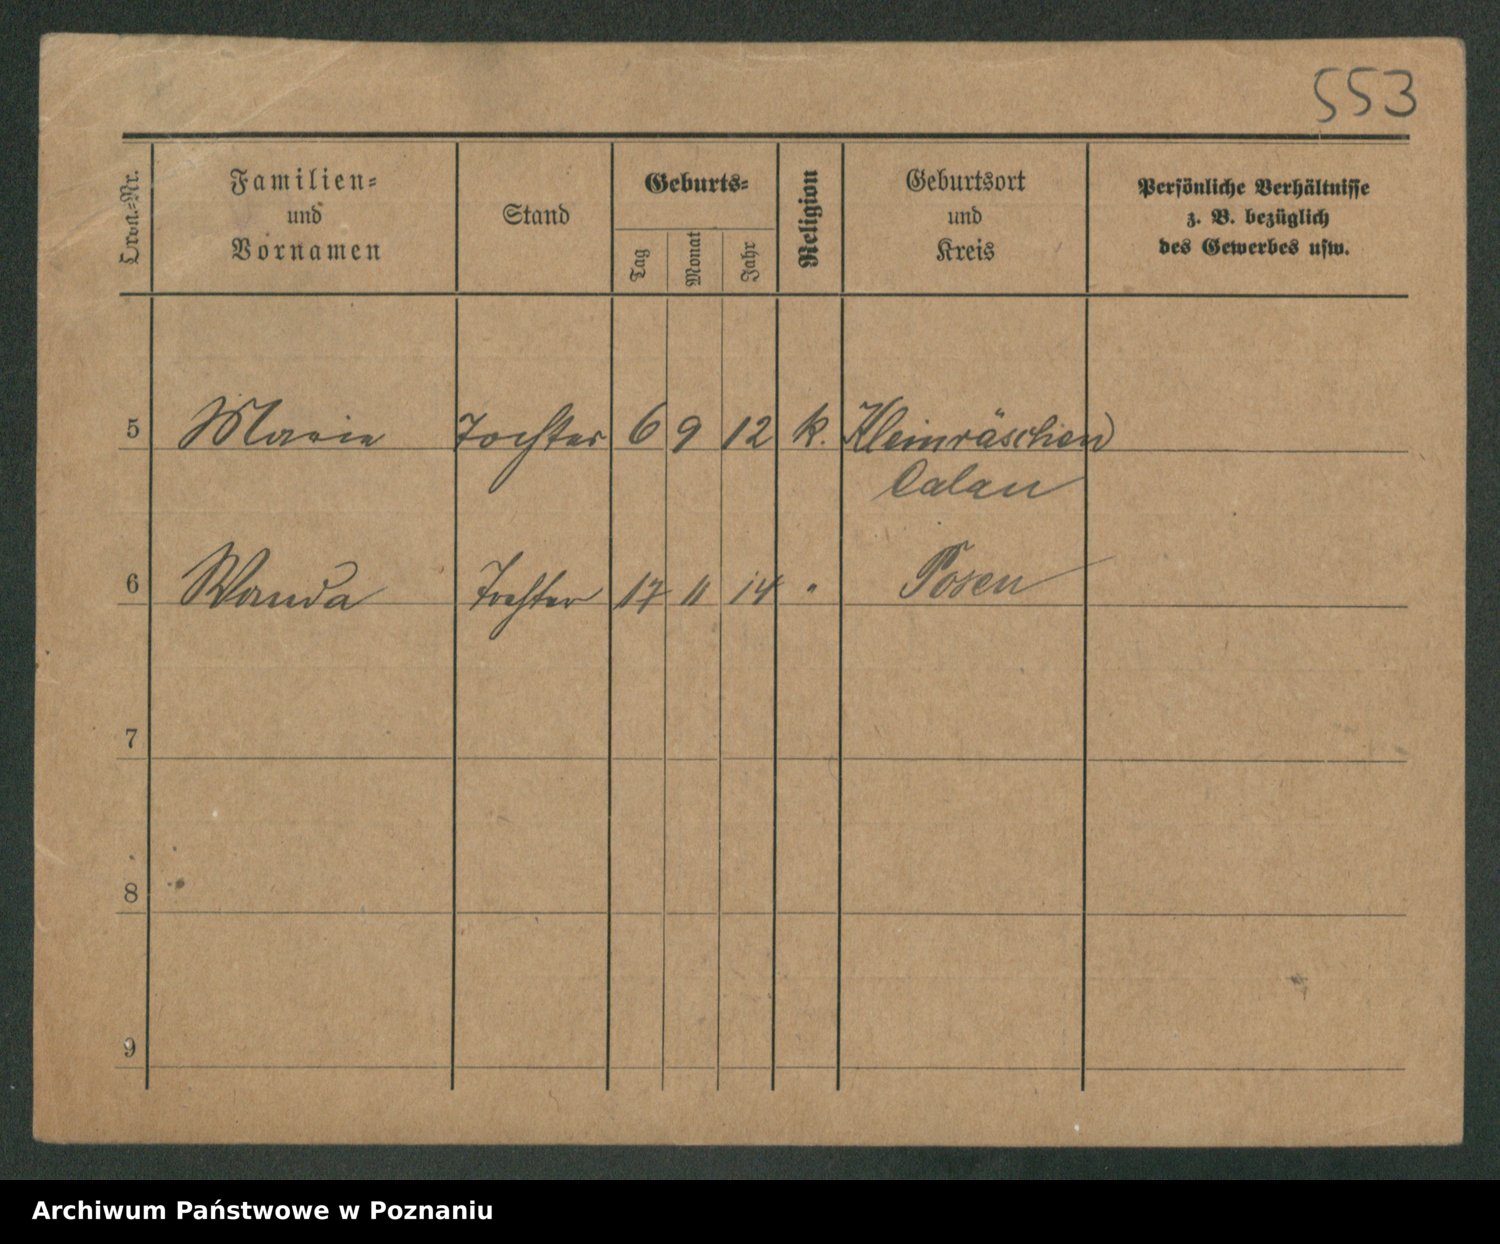 553
Ordn.-Nr.
Familien-
und
Vornamen
Stand
Geburts-
Tag
Monat
Jahr
Religion
Geburtsort
und
Kreis
Persönliche Verhältnisse
z. B. bezüglich
des Gewerbes usw.
5 Marie Tochter 6 9 12 k. Kleinräschen
Calau
6 Wanda Tochter 17 11 14 " Posen
7
8
9
Archiwum Państwowe w Poznaniu